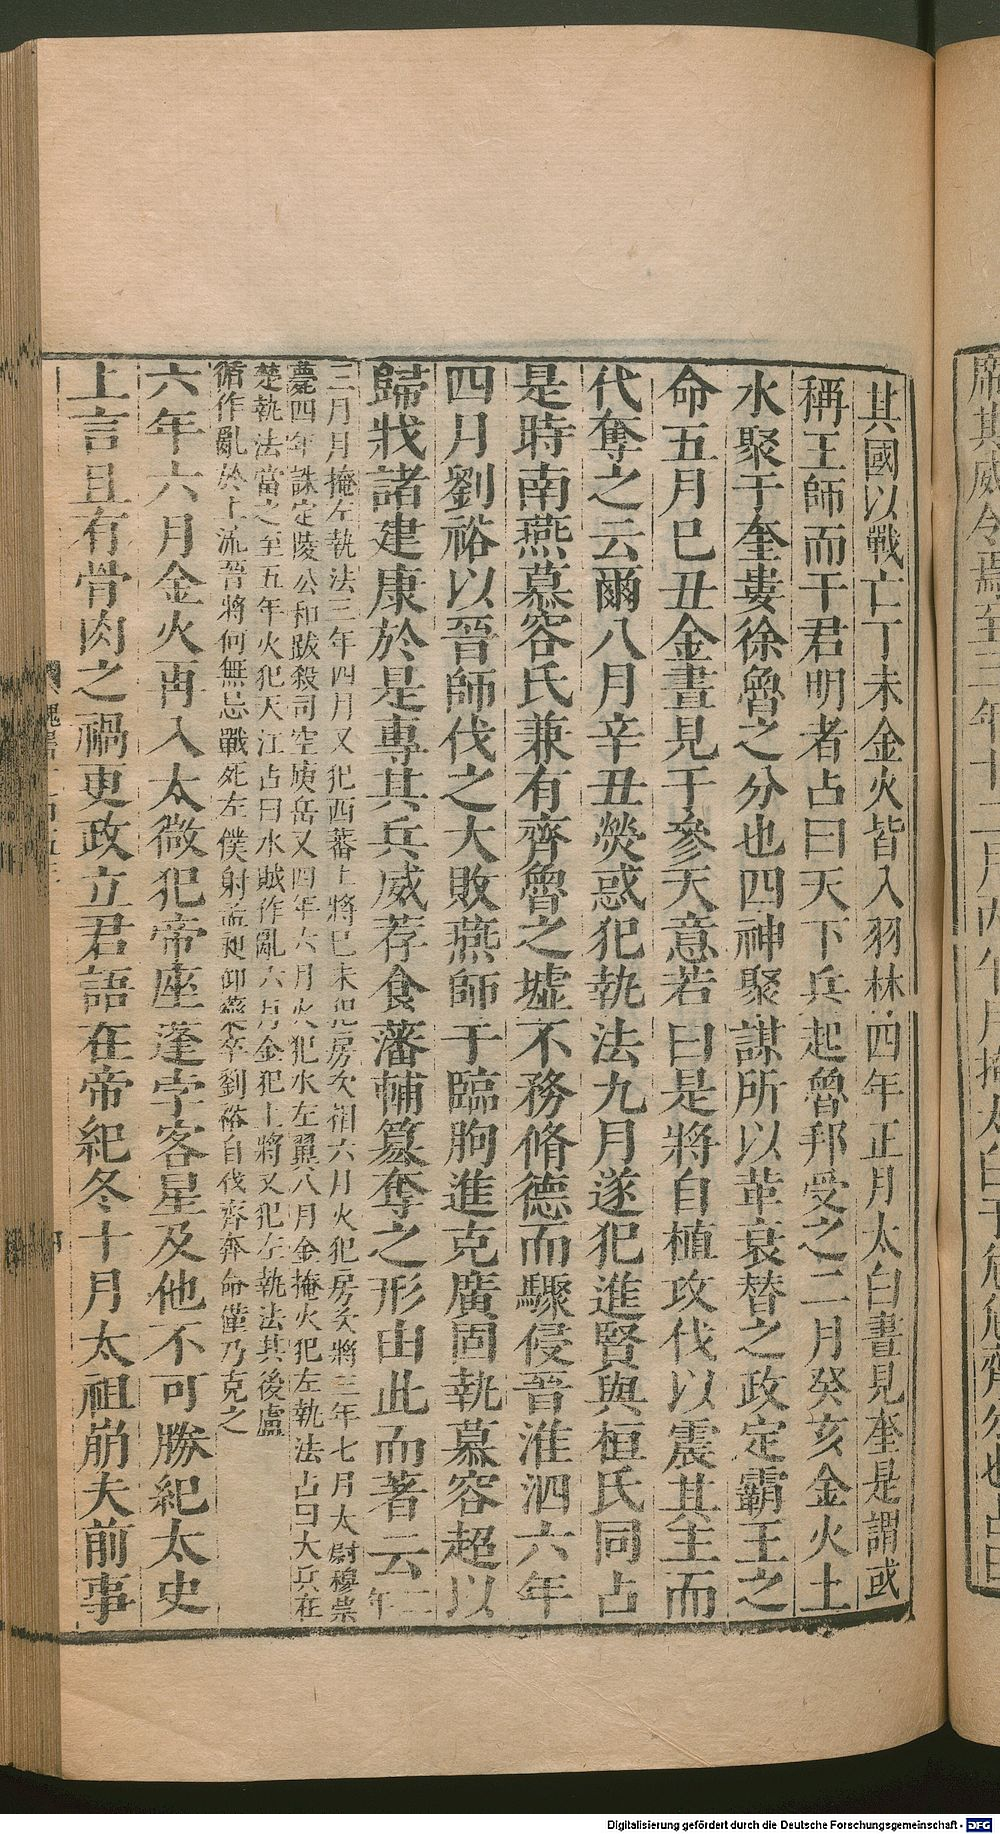 其國以戰亡丁未金火皆入羽林四年正月太白晝見奎是謂或
稱王師而干君明者占曰天下兵起魯邦受之二月癸亥金火土
水聚于奎婁徐魯之分也四神聚謀所以革衰替之政定霸王之
命五月己丑金晝見于參天意若曰是將自植攻伐以震其主而
代奪之云爾八月辛丑熒惑犯執法九月遂犯進賢與桓氏同占
是時南燕慕容氏兼有齊魯之墟不務脩德而驟侵晉淮泗六年
四月劉裕以晉師伐之大敗燕師于臨朐進克廣固執慕容超以
歸戕諸建康於是專其兵威荐食藩輔篡奪之形由此而著云二年
三月月掩左執法三年四月又犯西蕃上將己未犯房次相六月火犯房次將三年七月太尉穆崇
薨四年誅定陵公和跋殺司空庾岳又四年六月火犯水左翼八月金掩火犯左執法占曰大兵在
楚執法當之至五年火犯天江占曰水賊作亂六月金犯上將又犯左執法其後盧
循作亂於上流晉將何無忌戰死左僕射孟昶仰藥卒劉裕自伐齊奔命僅乃克之
六年六月金火再入太微犯帝座蓬孛客星及他不可勝紀太史
上言且有骨肉之禍更政立君語在帝紀冬十月太祖崩夫前事
Digitalisierung gefördert durch die Deutsche Forschungsgemeinschaft - DFG